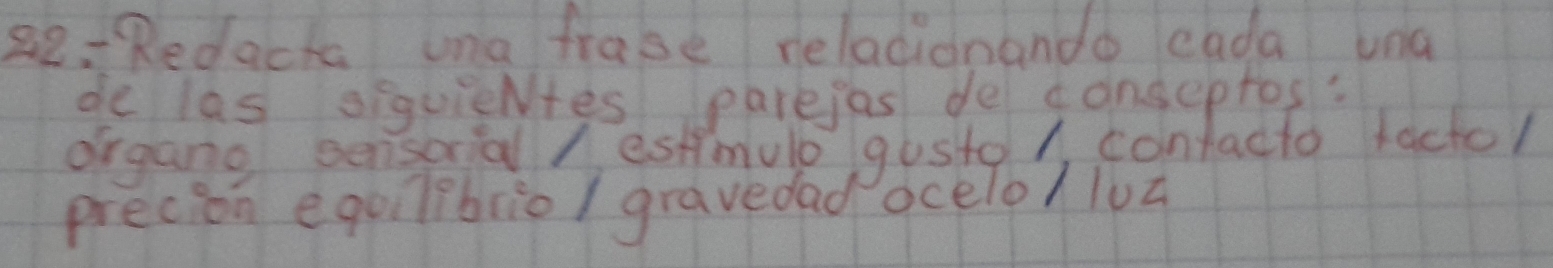 22.- Redacta una frase relacionando cada una
de las siguieNtes parejas de conseptos:
órgano sensorial / estímulo gusto /, contacto tacto /
preción equilibrio / gravedad ocelo / luz